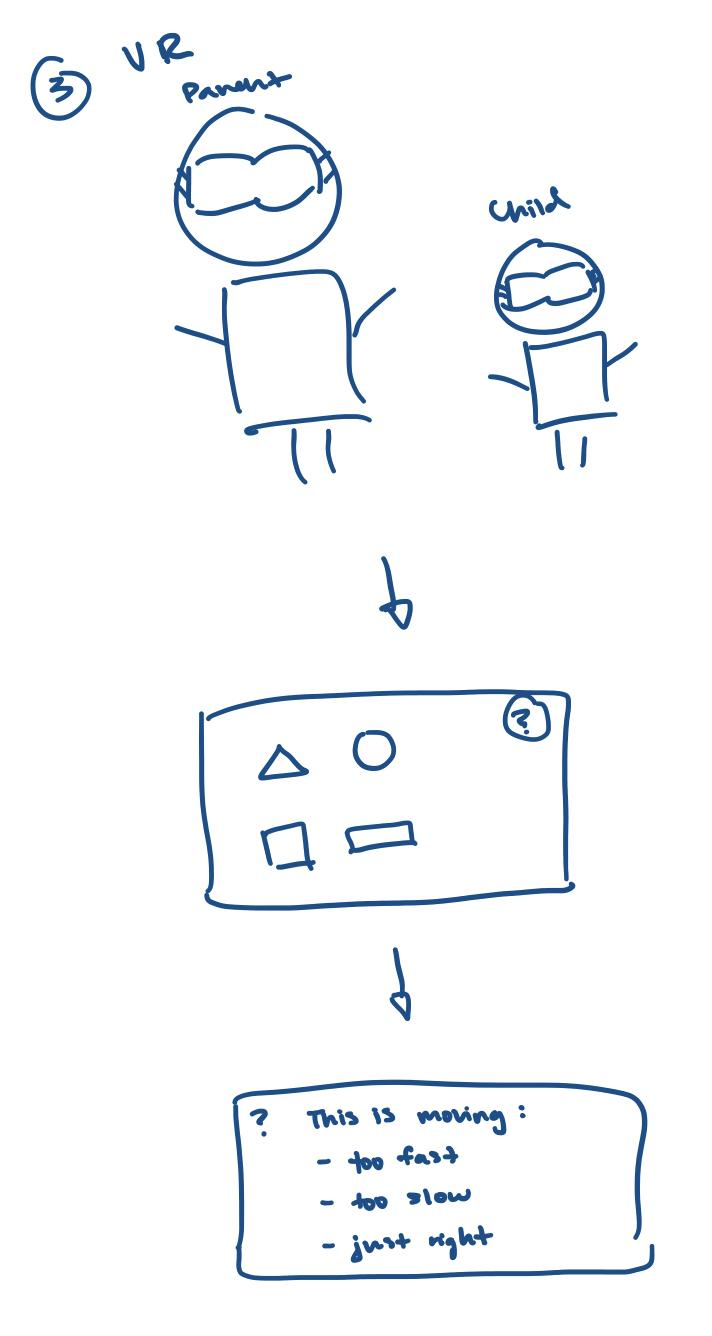 3
VR
Parent
Child
?
? This is moving:
- too fast
- too slow
- just right